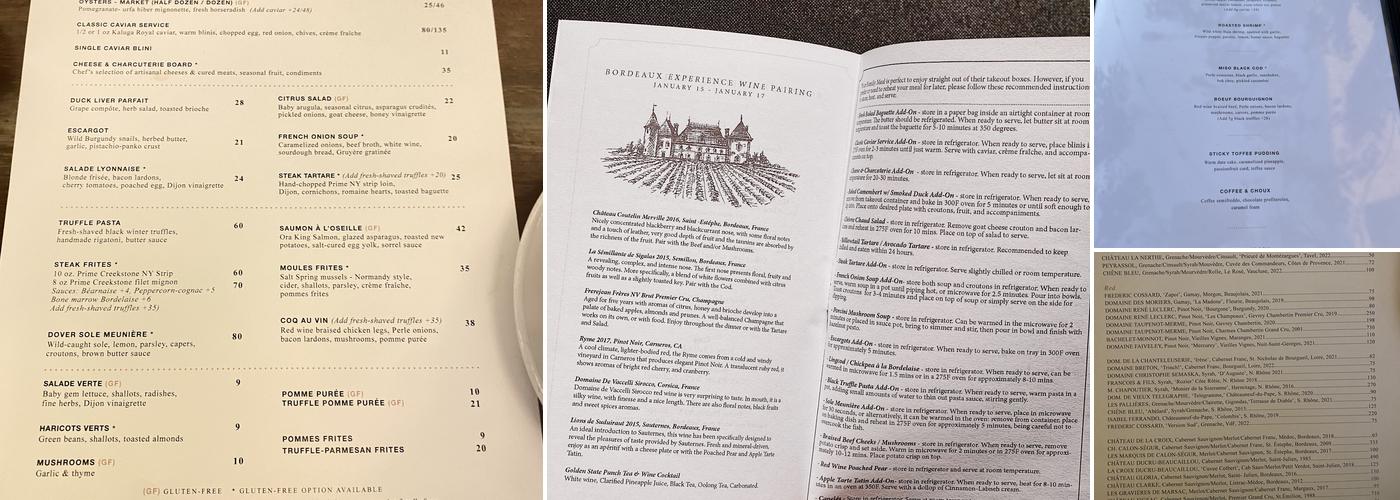 OYSTERS - MARKET (HALF DOZEN / DOZEN) (GF) 25/46
Pomegranate- urfa biber mignonette, fresh horseradish (Add caviar +24/48)
CLASSIC CAVIAR SERVICE 80/135
1/2 or 1 oz Kaluga Royal caviar, warm blinis, chopped egg, red onion, chives, crème fraîche
SINGLE CAVIAR BLINI 11
CHEESE & CHARCUTERIE BOARD * 35
Chef's selection of artisanal cheeses & cured meats, seasonal fruit, condiments
DUCK LIVER PARFAIT 28
Grape compôte, herb salad, toasted brioche
ESCARGOT
Wild Burgundy snails, herbed butter, 21
garlic, pistachio-panko crust
SALADE LYONNAISE *
Blonde frisée, bacon lardons, 24
cherry tomatoes, poached egg, Dijon vinaigrette
CITRUS SALAD (GF) 22
Baby arugula, seasonal citrus, asparagus crudités,
pickled onions, goat cheese, honey vinaigrette
FRENCH ONION SOUP * 20
Caramelized onions, beef broth, white wine,
sourdough bread, Gruyère gratinée
STEAK TARTARE * (Add fresh-shaved truffles +20) 25
Hand-chopped Prime NY strip loin,
Dijon, cornichons, romaine hearts, toasted baguette
TRUFFLE PASTA 60
Fresh-shaved black winter truffles,
handmade rigatoni, butter sauce
STEAK FRITES *
10 oz. Prime Creekstone NY Strip 60
8 oz Prime Creekstone filet mignon 70
Sauces: Béarnaise +4, Peppercorn-cognac +5
Bone marrow Bordelaise +6
Add fresh-shaved truffles +35)
DOVER SOLE MEUNIÈRE * 80
Wild-caught sole, lemon, parsley, capers,
croutons, brown butter sauce
SAUMON À L'OSEILLE (GF) 42
Ora King Salmon, glazed asparagus, roasted new
potatoes, salt-cured egg yolk, sorrel sauce
MOULES FRITES * 35
Salt Spring mussels - Normandy style,
cider, shallots, parsley, crème fraîche,
pommes frites
COQ AU VIN (Add fresh-shaved truffles +35) 38
Red wine braised chicken legs, Perle onions,
bacon lardons, mushrooms, pomme purée
SALADE VERTE (GF) 9
Baby gem lettuce, shallots, radishes,
fine herbs, Dijon vinaigrette
HARICOTS VERTS * 9
Green beans, shallots, toasted almonds
MUSHROOMS (GF) 10
Garlic & thyme
POMME PURÉE (GF) 10
TRUFFLE POMME PURÉE (GF) 21
POMMES FRITES 9
TRUFFLE-PARMESAN FRITES 20
(GF) GLUTEN-FREE * GLUTEN-FREE OPTION AVAILABLE
BORDEAUX EXPERIENCE WINE PAIRING
JANUARY 15 - JANUARY 17
Château Coutelin Merville 2016, Saint-Estèphe, Bordeaux, France
Nicely concentrated blackberry and blackcurrant nose, with some floral notes
and a touch of leather, very good depth of fruit and the tannins are absorbed by
the richness of the fruit. Pair with the Beef and/or Mushrooms.
La Sémillante de Sigalas 2015, Semillon, Bordeaux, France
A revealing, complex, and intense nose. The first nose presents floral, fruity and
woody notes. More specifically, a blend of white flowers combined with citrus
fruits as well as a slightly toasted key. Pair with the Cod.
Frerejean Frères NV Brut Premier Cru, Champagne
Aged for five years with aromas of citrus, honey and brioche develop into a
palate of baked apples, almonds and prunes. A well-balanced Champagne that
works on its own, or with food. Enjoy throughout the dinner or with the Tartare
and Salad.
Ryme 2017, Pinot Noir, Carneros, CA
A cool climate, lighter-bodied red, the Ryme comes from a cold and windy
vineyard in Carneros that produces elegant Pinot Noir. A translucent ruby red, it
shows aromas of bright red cherry, and cranberry.
Domaine De Vaccelli Sirocco, Corsica, France
Domaine de Vaccelli Sirocco red wine is very surprising to taste. In mouth, it is a
silky wine, with finesse and a nice length. There are also floral notes, black fruits
and sweet spices aromas.
Lions de Suduiraut 2015, Sauternes, Bordeaux, France
An ideal introduction to Sauternes, this wine has been specifically designed to
reveal the pleasures of tasty Sauternes provided. Fresh and mineral-driven,
enjoy as an apéritif with a cheese plate or with the Poached Pear and Apple Tarte
Tatin.
Golden State Punch Tea & Wine Cocktail
White wine, Clarified Pineapple Juice, Black Tea, Oolong Tea, Carbonated.
Family Meal is perfect to enjoy straight out of their takeout boxes. However, if you
need to reheat your meal for later, please follow these recommended instructions
Baguette Add-On - store in a paper bag inside an airtight container at room
The butter should be refrigerated. When ready to serve, let butter sit at room
and toast the baguette for 5-10 minutes at 350 degrees.
Caviar Service Add-On - store in refrigerator. When ready to serve, place blinis
for 2-3 minutes until just warm. Serve with caviar, crème fraîche, and accompa-
Charcuterie Add-On - store in refrigerator. When ready to serve, let sit at room
for 20-30 minutes.
Baked Camembert w/ Smoked Duck Add-On - store in refrigerator. When ready to serve,
from takeout container and bake in 300F oven for 5 minutes or until soft enough to
Place onto desired plate with croutons, fruit, and accompaniments.
Chaud Salad - store in refrigerator. Remove goat cheese crouton and bacon lar-
and reheat in 275F oven for approximately 5 minutes. Place on top of salad to serve.
Tartare / Avocado Tartare - store in refrigerator. Recommended to keep
chilled and eaten within 24 hours.
Steak Tartare Add-On - store in refrigerator. Serve slightly chilled or room temperature.
French Onion Soup Add-On - store both soup and croutons in refrigerator. When ready to
serve, warm soup in a pot until piping hot, or microwave for 2.5 minutes. Pour into bowls.
Toast croutons for 3-4 minutes and place on top of soup or simply serve on the side for
dipping.
Porcini Mushroom Soup - store in refrigerator. Can be warmed in the microwave for 2
minutes or placed in sauce pot, bring to simmer and stir, then pour in bowl and finish with
hazelnut pesto.
Escargots Add-On - store in refrigerator. When ready to serve, bake on tray in 300F oven
for approximately 5 minutes.
Lingcod / Chickpea Add-On - store in refrigerator. When ready to serve, can be
warmed in microwave for 1.5 mins or in a 275F oven for approximately 8-10 mins.
Black Truffle Pasta Add-On - store in refrigerator. When ready to serve, warm pasta in a
pot, adding small amounts of water to thin out pasta sauce, stirring gently.
Sole Meunière Add-On - store in refrigerator. When ready to serve, place in microwave
for 30 seconds, or alternatively, it can be warmed in the oven: remove from container, place
in baking dish and reheat in 275F oven for approximately 5 minutes, being careful not to
overcook the fish.
Braised Beef Cheeks / Mushrooms - store in refrigerator. When ready to serve, remove
potato crisp and set aside. Warm in microwave for 2 minutes or in 275F oven for approxi-
mately 10-12 mins. Place potato crisp on top.
Red Wine Poached Pear - store in refrigerator and serve at room temperature.
Apple Tarte Tatin Add-On - store in refrigerator. When ready to serve, heat for 8-10 min-
utes in an oven at 350F. Serve with a dollop of Cinnamon-Labneh cream.
ROASTED SHRIMP *
MISO BLACK COD *
BOEUF BOURGUIGNON
Red wine braised beef, Perle onions, bacon lardons,
mushrooms, carrots, pomme purée
STICKY TOFFEE PUDDING
Warm date cake, caramelized pineapple,
passionfruit curd, toffee sauce
COFFEE & CHOUX
Coffee semifreddo, chocolate profiteroles,
caramel foam
CHÂTEAU LA NERTHE, Grenache/Mourvèdre/Cinsault, Tavel, 2022
PEYRASSOL, Grenache/Cinsault/Syrah/Mourvèdre, Cuvée des Commandeurs, Côtes de Provence, 2021
CHÊNE BLEU, Grenache/Cinsault/Syrah/Mourvèdre/Rolle, Le Rosé, Vaucluse, 2022
Red
FREDERIC COSSARD, Gamay, Morgon, Beaujolais, 2021
DOMAINE DES MORIERS, Gamay, "La Madone", Fleurie, Beaujolais, 2019
DOMAINE RENÉ LECLERC, Pinot Noir, "Bourgogne", Burgundy, 2020
DOMAINE RENÉ LECLERC, Pinot Noir, "Les Champeaux", Gevrey Chambertin Premier Cru, 2019
DOMAINE TAUPENOT-MERME, Pinot Noir, Gevrey Chambertin, 2020
DOMAINE TAUPENOT-MERME, Pinot Noir, Charmes Chambertin Grand Cru, 2001
BACHELET-MONNOT, Pinot Noir, Vieilles Vignes, Maranges, 2021
DOMAINE FAIVELEY, Pinot Noir, Nuit-Saint-Georges, 2021
DOM. DE LA CHANTELEUSERIE, Cabernet Franc, St. Nicholas de Bourgueil, Loire, 2021
DOMAINE BRETON, "Trinch!", Cabernet Franc, Bourgueil, Loire, 2022
DOMAINE CHRISTOPHE SEMASKA, Syrah
FRANCOIS & FILS, Syrah, Côte Rôtie, N. Rhône
M. CHAPOUTIER, Syrah, Hermitage, N. Rhône
DOM. DE VIEUX TELEGRAPHE, "Telegramme," Châteauneuf-du-Pape, S. Rhône
LES PALLIÈRES, Grenache/Mourvèdre/Clairette, Gigondas
CHÊNE BLEU, "Abélard", Syrah/Grenache, S. Rhône
ISABEL FERRANDO, Châteauneuf-du-Pape, "Colombis", S. Rhône
FREDERIC COSSARD, "Version Sud", Grenache, VdF, 2022
CHÂTEAU DE LA CROIX, Cabernet Sauvignon/Merlot/Cabernet Franc, Médoc, Bordeaux, 2018
CH. CALON-SÉGUR, Cabernet Sauvignon/Merlot/Cabernet Franc, St. Estèphe, Bordeaux
LES MARQUIS DE CALON-SÉGUR, Cabernet Sauvignon/Merlot, St. Estèphe, Bordeaux
CHÂTEAU DUCRU-BEAUCAILLOU, Cabernet Sauvignon/Merlot, Saint-Julien
CHÂTEAU GLORIA, Cabernet Sauvignon/Merlot, Saint-Julien, Bordeaux
CHÂTEAU CLARKE, Cabernet Sauvignon/Merlot